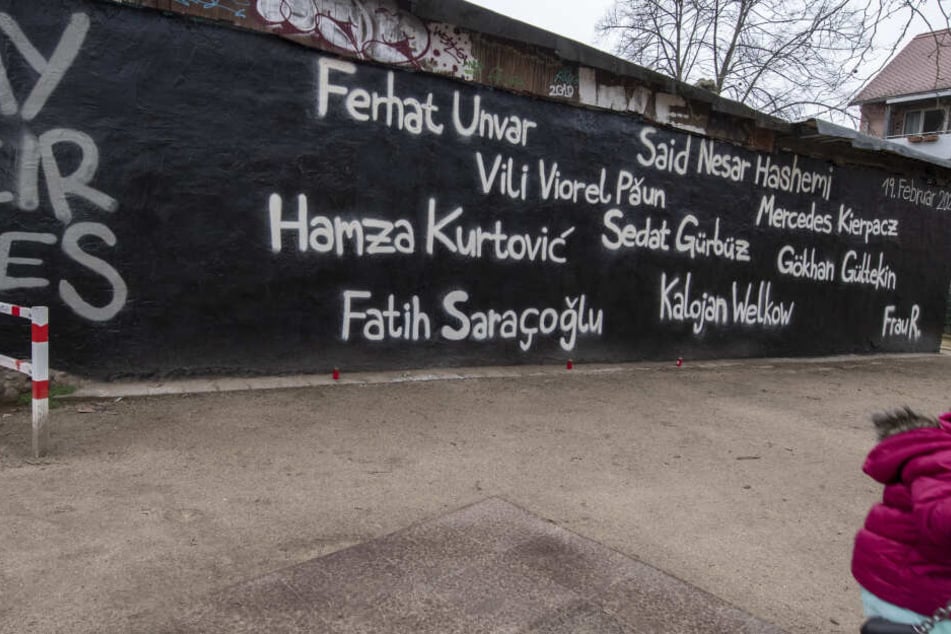 AY
EIR
ES
Ferhat Unvar
Said Nesar Hashemi
Vili Viorel Păun
19. Februar 202
Mercedes Kierpacz
Hamza Kurtović
Sedat Gürbüz
Gökhan Gültekin
Fatih Saraçoğlu
Kalojan Welkow
Frau R.